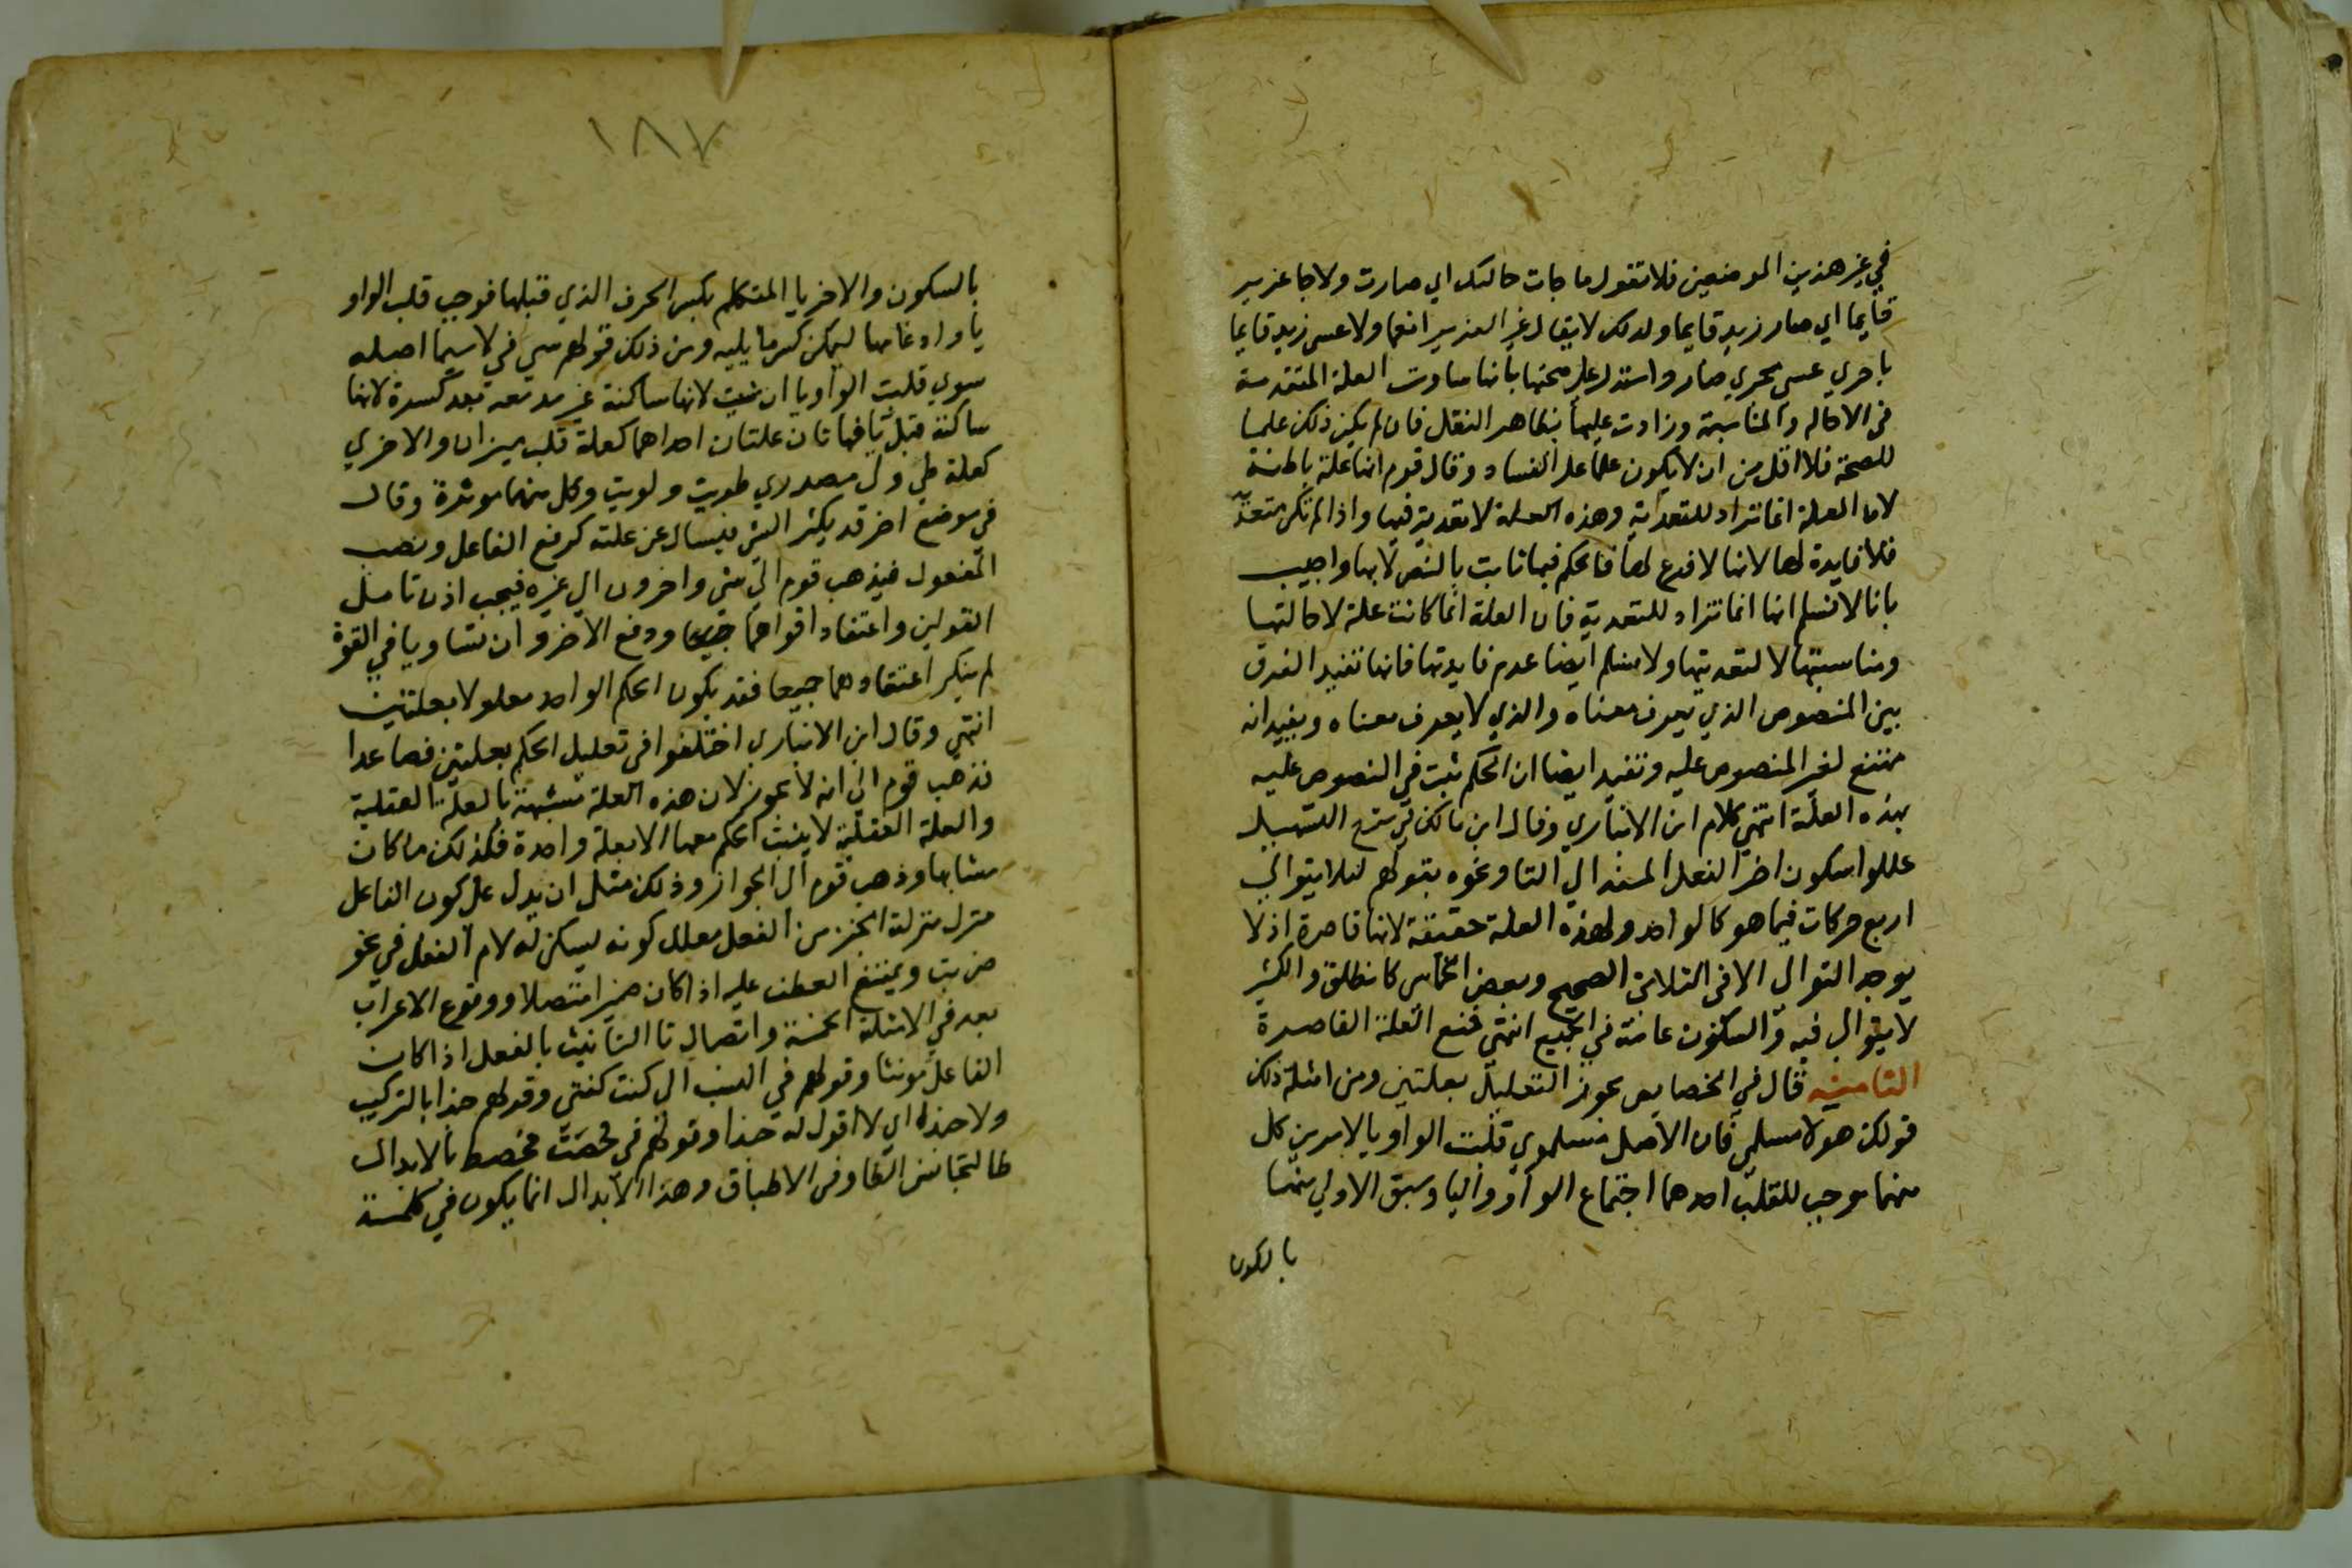 في غير هذين الموضعين فلا تقول ما جات حالتك اي صارت ولا جا عزير
قايما اي صار زيد قايما ولذلك لا يقال في الغوير انعما ولا عسى زيد قايما
باجري عسى مجري صار واستدل علي صحتها بانها ساوت العلة المتقدمة
في الاخاله والمناسبة وزادت عليها بظاهر النقل فان لم يكن ذلك علما
للصحة فلا اقل من ان لا يكون علما على الفساد وقال قوم انها علة باطلة
لان العلة انما تراد للتعدية وهذه العلة لا تعدية فيها واذا لم تكن متعدية
فلا فايدة لها لانها لا فرع لها فالحكم فيها ثابت بالنص لا بها واجيب
بانا لا نسلم انها انما تراد للتعدية فان العلة انما كانت علة لاخالتها
ومناسبتها لا لتعديتها ولا نسلم ايضا عدم فايدتها فانها تفيد الفرق
بين المنصوص الذي يعرف معناه والذي لا يعرف معناه ويفيد انه
ممتنع لغير المنصوص عليه وتفيد ايضا ان الحكم ثبت في النصوص عليه
بهذه العلة انتهي كلام ابن الانباري وقال ابن مالك في شرح التسهيل
عللوا سكون اخر الفعل المسند الي التا ونحوه بقولهم ليلا يتوالي
اربع حركات فيما هو كالواحد ولهذه العلة ضعيفة لانها قاصرة اذ لا
يوجد التوالي الا في الثلاثي الصحيح وبعض الخماسي كانطلق والكثير
لا يتوالي فيه والسكون عامة في الجميع انتهي فمنع العلة القاصرة
الثامنيه قال في الخصايص يجوز التعليل بعلتين ومن امثلة ذلك
قولك هولا مسلمي فان الاصل مسلموي قلبت الواو يا لامرين كل
منهما موجب للقلب احدهما اجتماع الواو واليا وسبق الاولي منهما
بالسكون
١٨٧
بالسكون والاخر يا المتكلم بكسر الحرف الذي قبلها فوجب قلب الواو
يا وادغامها ليمكن كسر ما يليه ومن ذلك قولهم سي في لا سيما اصله
سوي قلبت الواو يا ان شيت لانها ساكنة غير مدغمة بعد كسرة لانها
ساكنة قبل يا فهاتان علتان احداهما كعلة قلب ميزان والاخري
كعلة طي ولي مصدري طويت ولويت وكل منهما موثرة وقال
في موضع اخر قد يكثر الشي فيسال عن علته كرفع الفاعل ونصب
المفعول فيذهب قوم الي شي واخرون الي غيره فيجب اذن تامل
القولين واعتقاد اقواهما ورفع الاخر وان تساويا في القوة
لم ينكر اعتقادهما جميعا فقد يكون الحكم الواحد معلولا بعلتين
انتهي وقال ابن الانباري اختلفوا في تعليل الحكم بعلتين فصاعدا
فذهب قوم الي انه لا يجوز لان هذه العلة مشبهة بالعلة العقلية
والعلة العقلية لا يثبت الحكم معها الا بعلة واحدة فكذلك ما كان
مشابها وذهب قوم الي الجواز وذلك مثل ان يدل على كون الفاعل
منزل منزلة الجز من الفعل معلل كونه يسكن له لام الفعل في نحو
ضربت ويمتنع العطف عليه اذا كان ضميرا متصلا ووقوع الاعراب
بعد في الامثلة الخمسة واتصال تا التانيث بالفعل اذا كان
الفاعل مونثا وقولهم في النسب الي كنت كنتي وقولهم حبذا بالتركيب
ولا حبذه اي لا اقول له حبذا وقولهم في فحصت فحصط بالابدال
طا لتجانس الطا وفي الاطباق وهذا الابدال انما يكون في كلمة